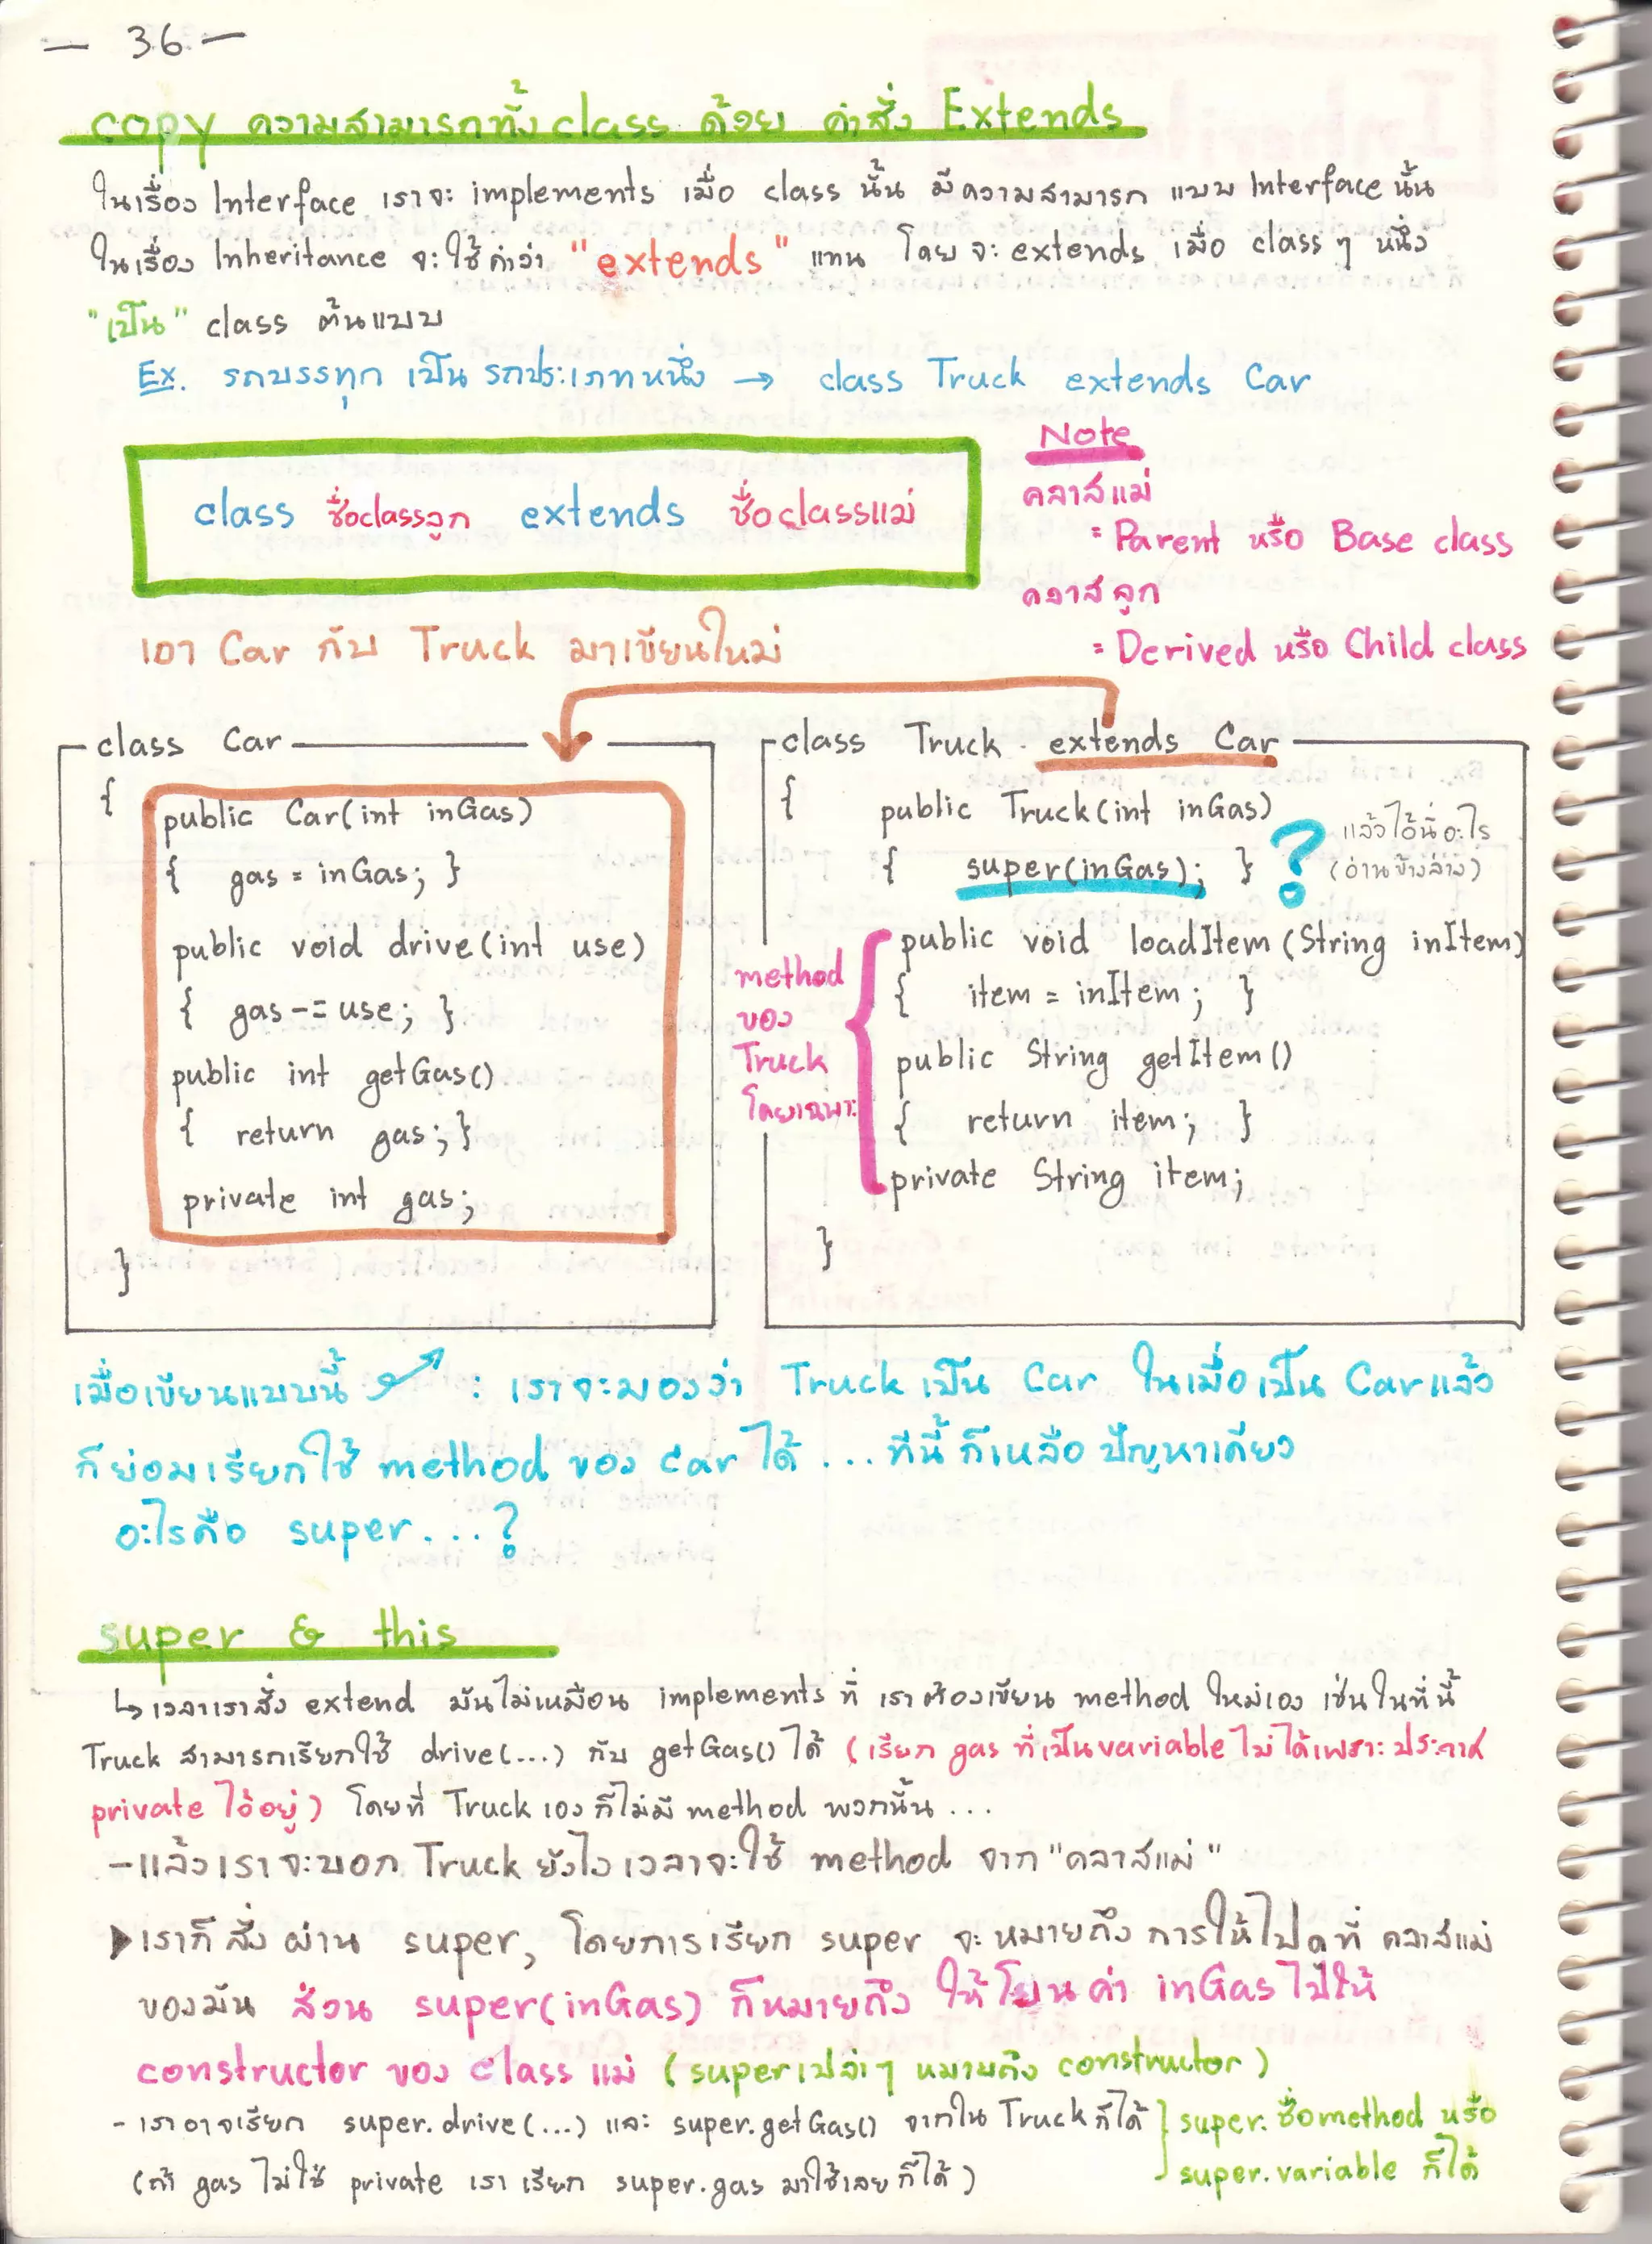 — 36 —
copy ความสามารถทั้ง class ด้วย คำสั่ง Extends
ในเรื่อง Interface เราจะ implements เมื่อ class นั้น มีความสามารถ แบบ Interface นั้น
ในเรื่อง Inheritance จะใช้คำว่า "extends" แทน โดยจะ extends เมื่อ class ๆ หนึ่ง
"เป็น" class ต้นแบบ
Ex. รถบรรทุก เป็น รถประเภทหนึ่ง → class Truck extends Car
class ชื่อclassลูก extends ชื่อclassแม่
Note
คลาสแม่
= Parent หรือ Base class
คลาสลูก
= Derived หรือ Child class
เอา Car กับ Truck มาเขียนใหม่
class Car
{
public Car(int inGas)
{ gas = inGas; }
public void drive(int use)
{ gas -= use; }
public int getGas()
{ return gas; }
private int gas;
}
class Truck extends Car
{
public Truck(int inGas)
{ super(inGas); } ?
แล้วไอ้นี่อะไร
(อ่านข้างล่าง)
method
ของ
Truck
โดยเฉพาะ
public void loadItem (String inItem)
{ item = inItem; }
public String getItem()
{ return item; }
private String item;
}
เมื่อเขียนแบบนี้ : เราจะมองว่า Truck เป็น Car ในเมื่อเป็น Car แล้ว
ก็ย่อมเรียกใช้ method ของ Car ได้ ... ทีนี้ ก็เหลือ ปัญหาเดียว
อะไรคือ super...?
super & this
↳ เวลาเราสั่ง extend มันไม่เหมือน implements ที่ เราต้องเขียน method ใหม่เอง เช่นในที่นี้
Truck สามารถเรียกใช้ drive(...) กับ getGas() ได้ (เรียก gas ที่เป็น variable ไม่ได้เพราะ ประกาศ
private ไว้อยู่) โดยที่ Truck เอง ก็ไม่มี method พวกนั้น ...
- แล้วเราจะบอก Truck ยังไง เวลาจะใช้ method จาก "คลาสแม่"
▶ เราก็ สั่ง ผ่าน super, โดยการเรียก super จะหมายถึง การให้ไปดูที่ คลาสแม่
ของมัน ส่วน super(inGas) ก็หมายถึง ให้โยนค่า inGas ไปให้
constructor ของ class แม่ (super เปล่าๆ หมายถึง constructor)
- เราอาจเรียก super.drive(...) และ super.getGas() จากใน Truck ก็ได้
(ถ้า gas ไม่ใช่ private เรา เรียก super.gas มาใช้เลย ก็ได้)
super.ชื่อmethod หรือ
super.variable ก็ได้